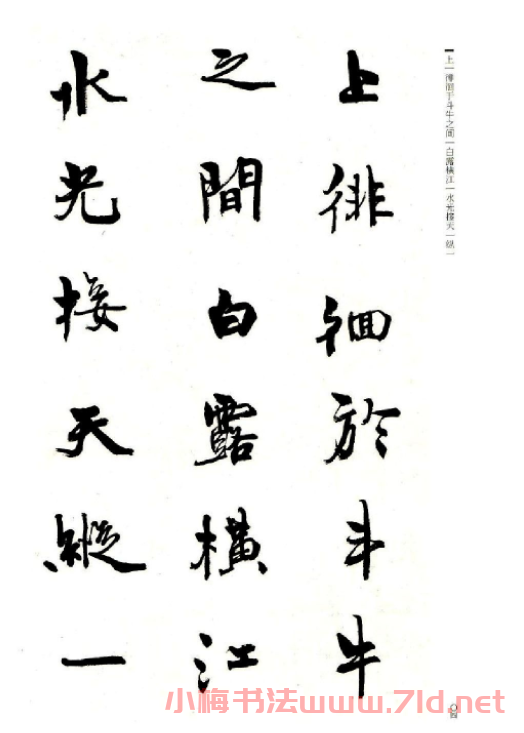 上徘徊於斗牛
之間白露橫江
水光接天縱一
上一徘徊于斗牛之间一白露横江一水光接天一纵一
〇四
小梅书法www.7ld.net